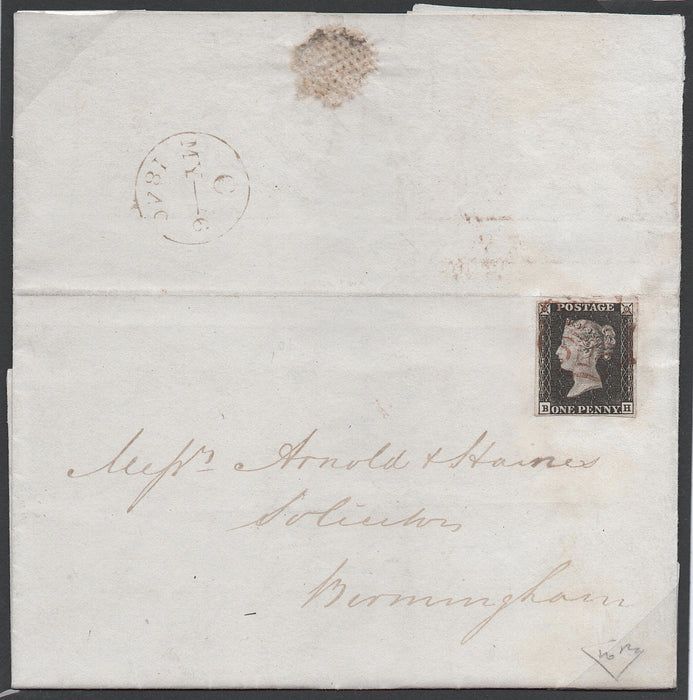 C
MY–6
1840
POSTAGE
B ONE PENNY H
Messrs Arnold & Haines
Solicitors
Birmingham